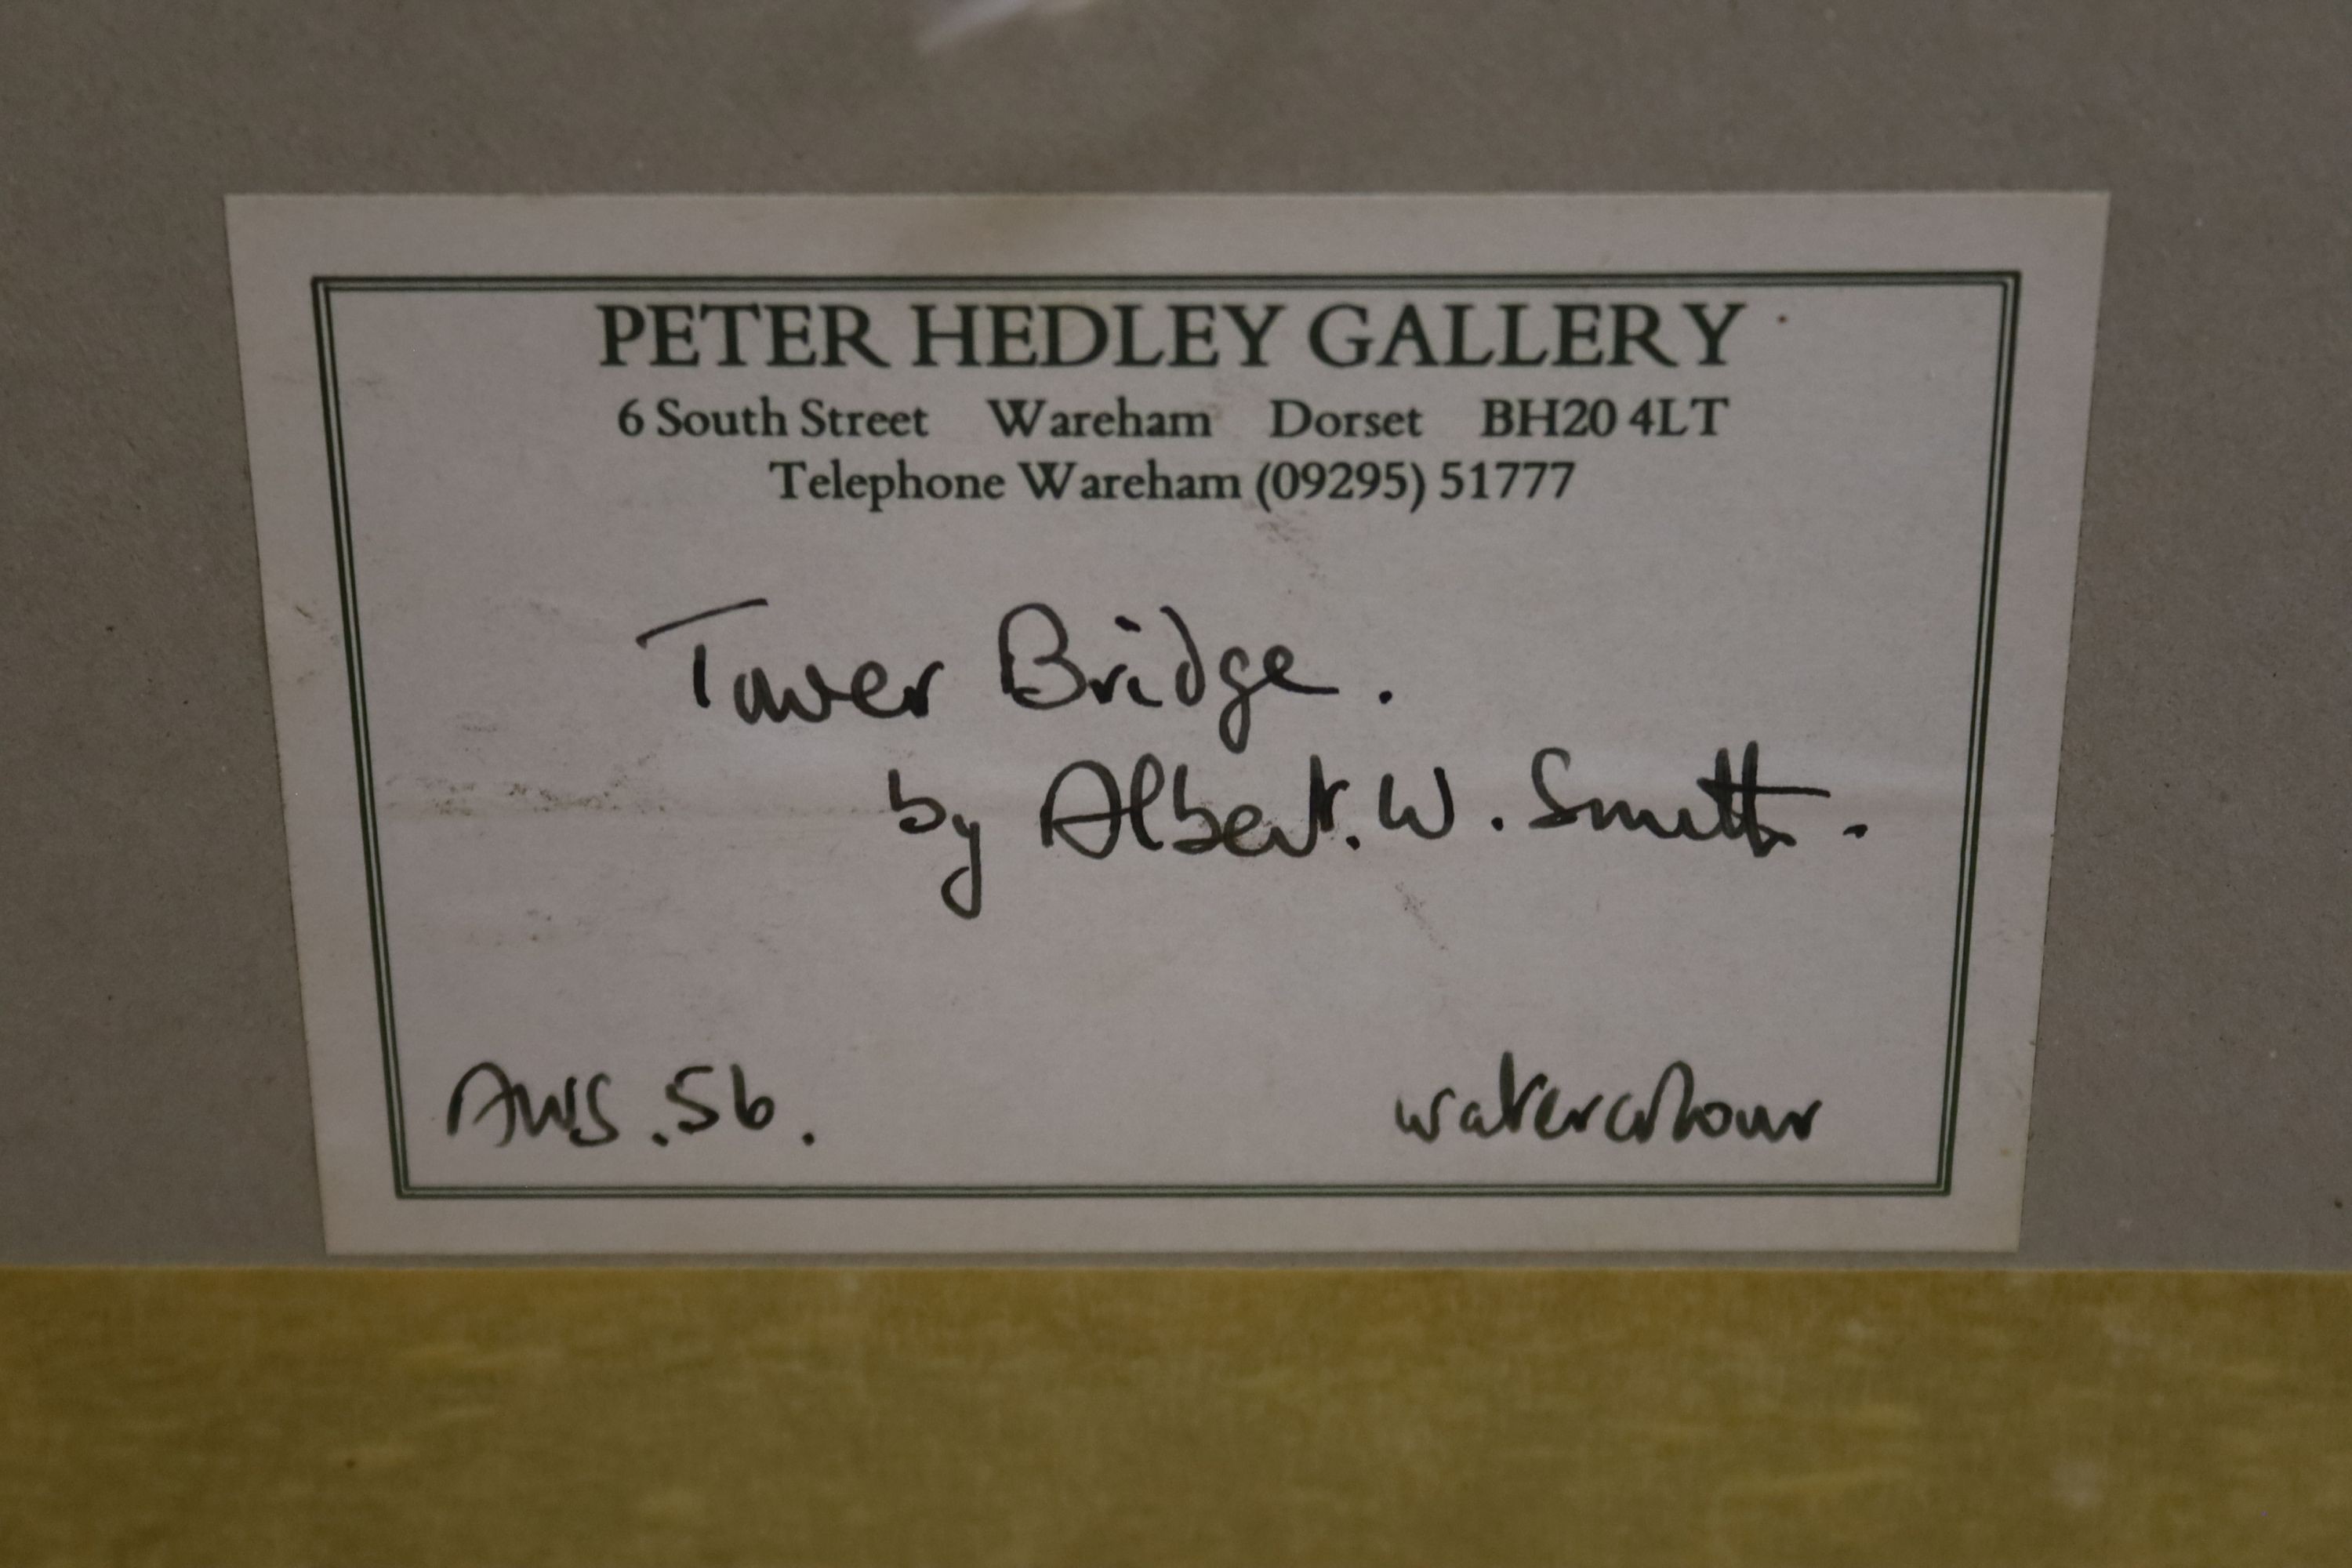 PETER HEDLEY GALLERY
6 South Street Wareham Dorset BH20 4LT
Telephone Wareham (09295) 51777
Tower Bridge.
by Albert. W. Smith.
AWS.56. watercolour